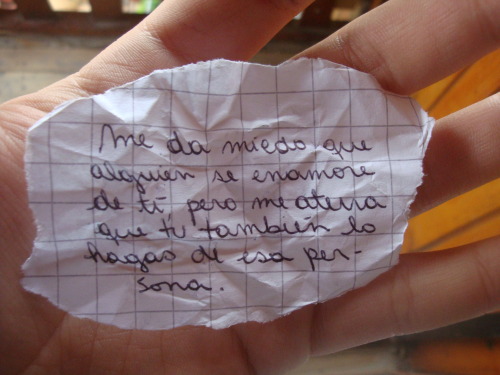 Me da miedo que
alguien se enamore
de ti pero me aterra
que tú también lo
hagas de esa per-
sona.